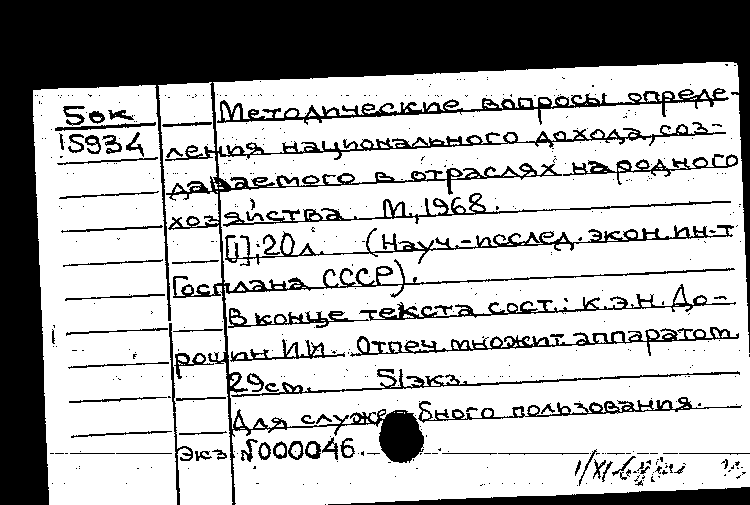 Бок Методические вопросы опреде-
15934 ления национального дохода, соз-
даваемого в отраслях народного
хозяйства. М., 1968.
[1], 20 л. (Науч.-исслед. экон. ин-т
Госплана СССР).
В конце текста сост.: к.э.н. До-
рошин И.И. Отпеч. множит. аппаратом.
29 см. 51 экз.
Для служебного пользования.
Экз. №000046.